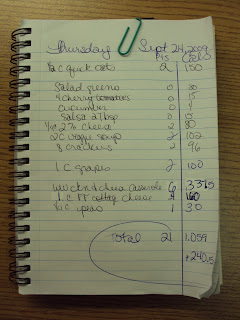 Thursday Sept 24, 2009
Pts Cals
1/2 C quick oats 2 150
Salad greens 0 30
4 cherry tomatoes 0 15
cucumber 0 4
Salsa 2 tbsp 0 15
2% cheese 2 80
2 C veggie soup 2 102
8 crackers 2 96
1 C grapes 2 100
chkn & chees casserole 6 337.5
1 C FF cottag cheese
1/2 C peas 1 30
Total 21 1,059
+240.5